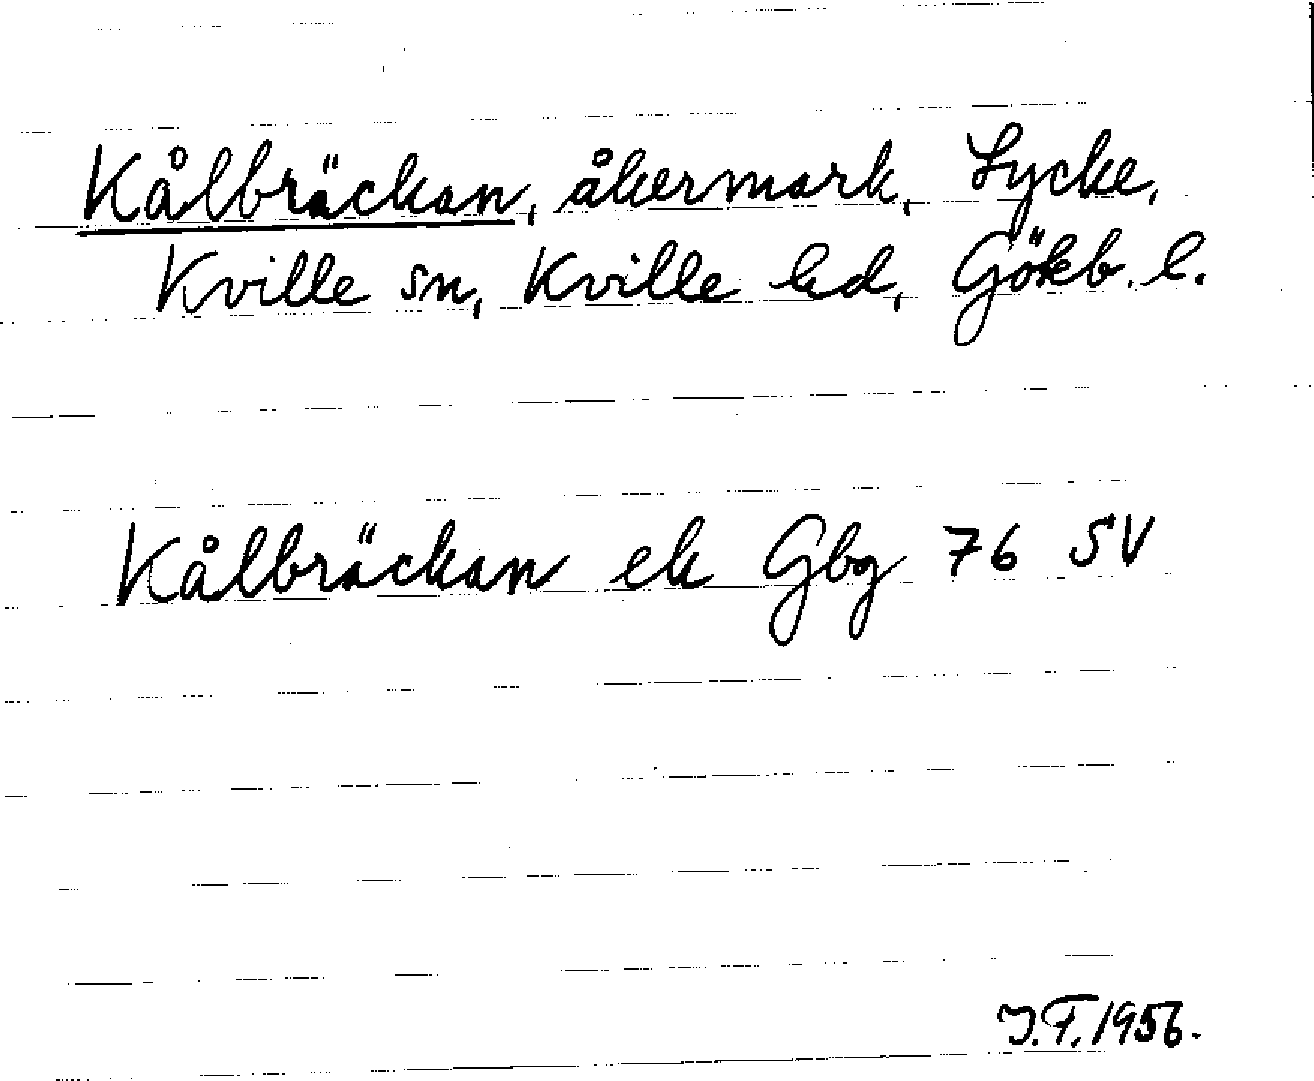 Kålbräckan, åkermark, Lycke,
Kville sn, Kville hd, Göteb. l.
Kålbräckan ek Gbg 76 SV
J.F. 1956.